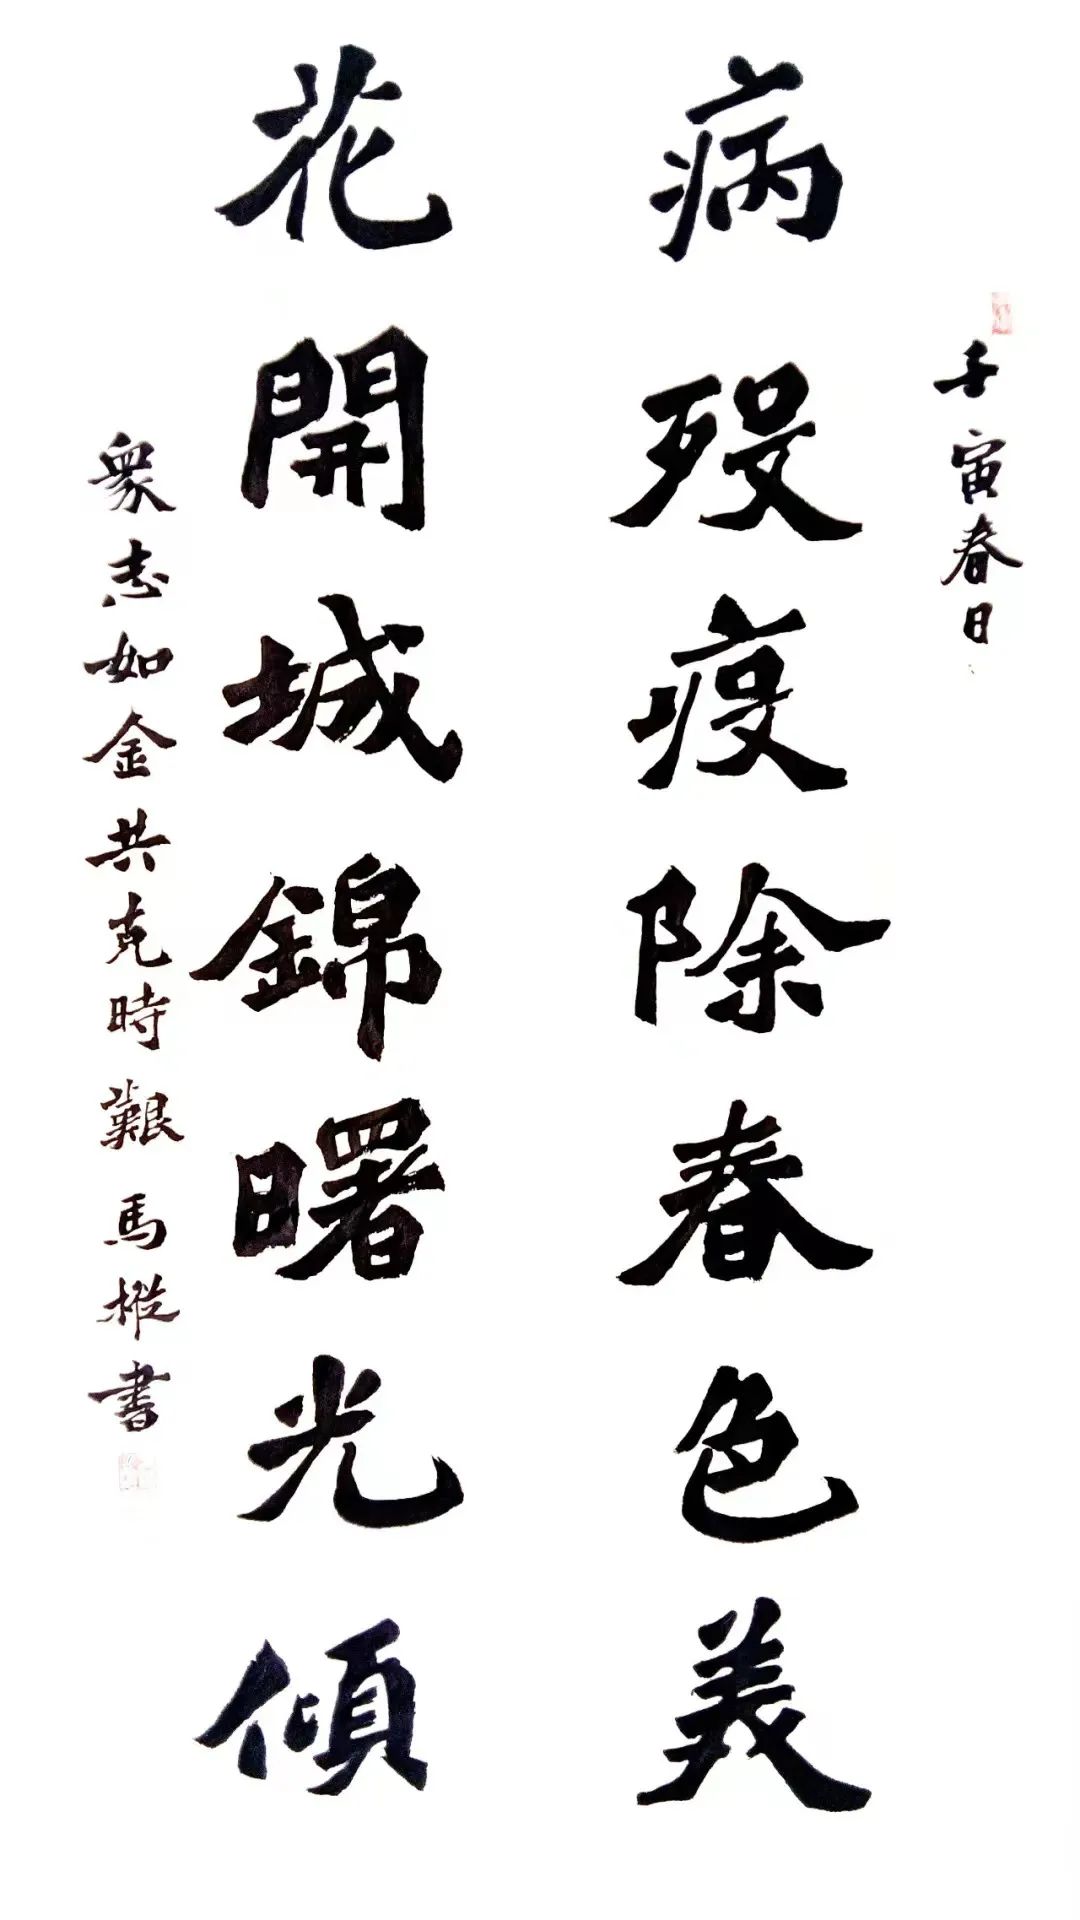 壬寅春日
病殁疫除春色美
花開城錦曙光傾
衆志如金共克時艱馬樅書